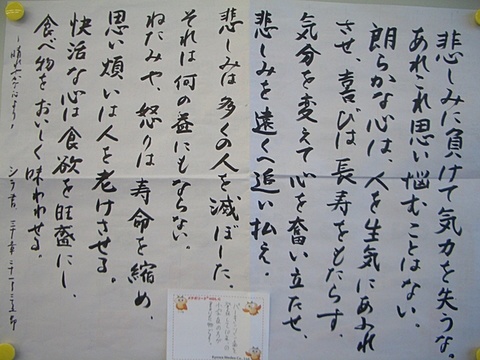 悲しみに負けて気力を失うな。
あれこれ思い悩むことはない。
朗らかな心は、人を生気にあふれ
させ、喜びは長寿をもたらす。
気分を変えて心を奮い立たせ、
悲しみを遠くへ追い払え。
悲しみは多くの人を滅ぼした。
それは何の益にもならない。
ねたみや、怒りは寿命を縮め、
思い煩いは人を老けさせる。
快活な心は食欲を旺盛にし、
食べ物をおいしく味わわせる。
シラ書 三十章 二十一~二五節